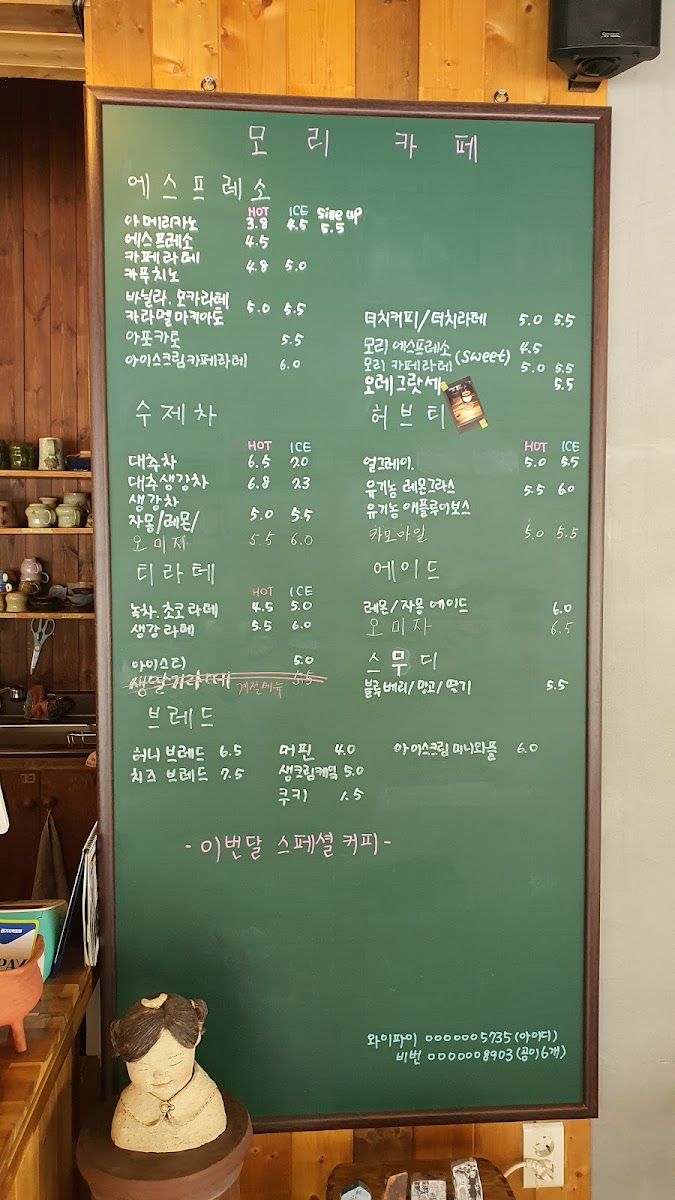 모리 카페
에스프레소
HOT ICE Size up
아메리카노 3.8 4.5 5.5
에스프레소 4.5
카페라떼
카푸치노 4.8 5.0
바닐라. 모카라떼
카라멜마키아토 5.0 5.5
아포카토 5.5
아이스크림카페라떼 6.0
더치커피/더치라떼 5.0 5.5
모리 에스프레소 4.5
(Sweet)
모리 카페라떼 5.0 5.5
오레그랏세 5.5
수제차
HOT ICE
대추차 6.5 7.0
대추생강차 6.8 7.3
생강차
자몽/레몬/ 5.0 5.5
오미자 5.5 6.0
허브티
HOT ICE
얼그레이. 5.0 5.5
유기농 레몬그라스
유기농 애플루이보스 5.5 6.0
카모마일 5.0 5.5
티라떼
HOT ICE
녹차.초코라떼 4.5 5.0
생강라떼 5.5 6.0
아이스티 5.0
생딸기라떼 계절메뉴 5.5
에이드
레몬/자몽 에이드 6.0
오미자 6.5
스무디
블루베리/망고/딸기 5.5
브레드
허니브레드 6.5 머핀 4.0 아이스크림미니와플 6.0
치즈 브레드 7.5 생크림케익 5.0
쿠키 1.5
-이번달 스페셜커피-
와이파이 0000005735(아이디)
비번 0000008903(공이6개)